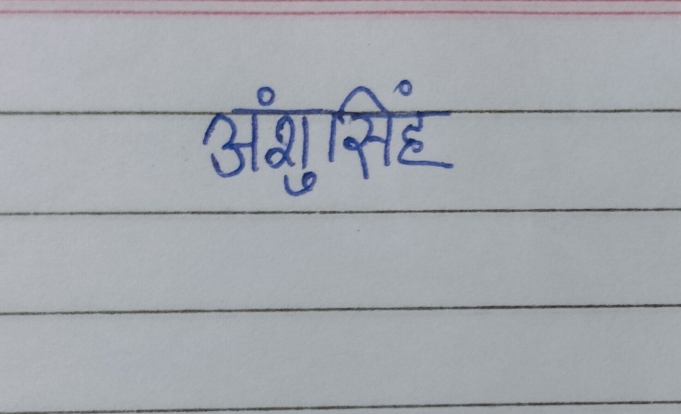 अंशु सिंह